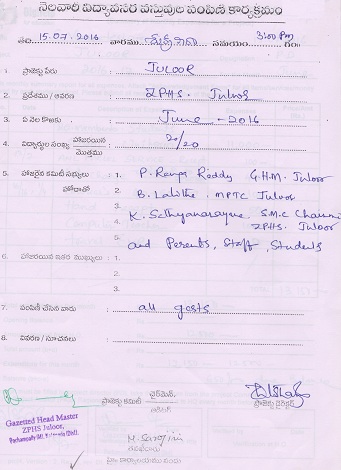 నెలవారీ విద్యావసర వస్తువుల పంపిణీ కార్యక్రమం
తేది. 15.07.2016 వారము శుక్రవారం సమయం 3:00 Pm గం.
1. ప్రాజెక్టు పేరు : JULOOR
2. ప్రదేశము / ఆవరణ : ZPHS. Juloor
3. ఏ నెల కొఱకు : June - 2016
4. విద్యార్థుల సంఖ్య హాజరయిన / మొత్తము : 20/20
5. హాజరైన కమిటీ సభ్యులు : 1. P. Ranga Reddy G.H.M. Juloor
హోదాతో 2. B. Lalitha MPTC Juloor
3. K. Sathyanarayana S.M.C
4. ZPHS. Juloor
5. and Parents, Staff, Students
6. హాజరయిన ఇతర ముఖ్యులు : 1.
2.
3.
7. పంపిణీ చేసిన వారు : all gests
8. వివరణ / సూచనలు :
ప్రాజెక్టు కమిటీ చైర్మెన్. ప్రాజెక్టు డైరెక్టర్
Gazetted Head Master
ZPHS Juloor,